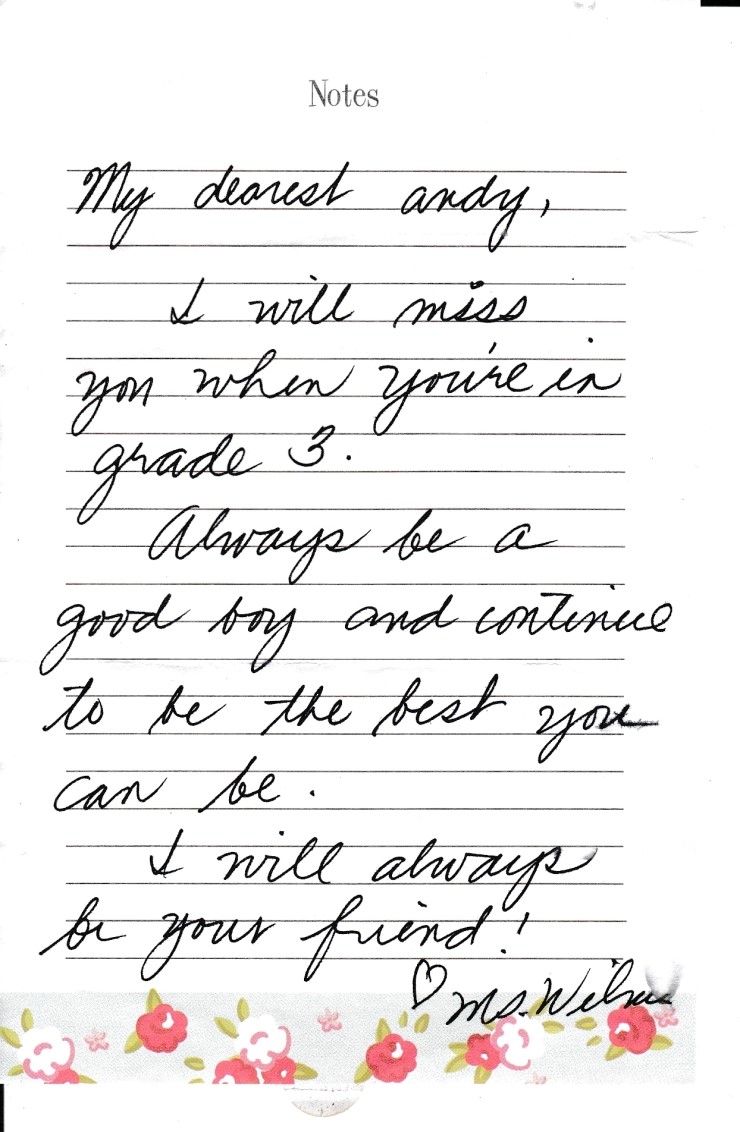 Notes
My dearest andy,
I will miss
you when you're in
grade 3.
Always be a
good boy and continue
to be the best you
can be.
I will always
be your friend!
♡ Ms.